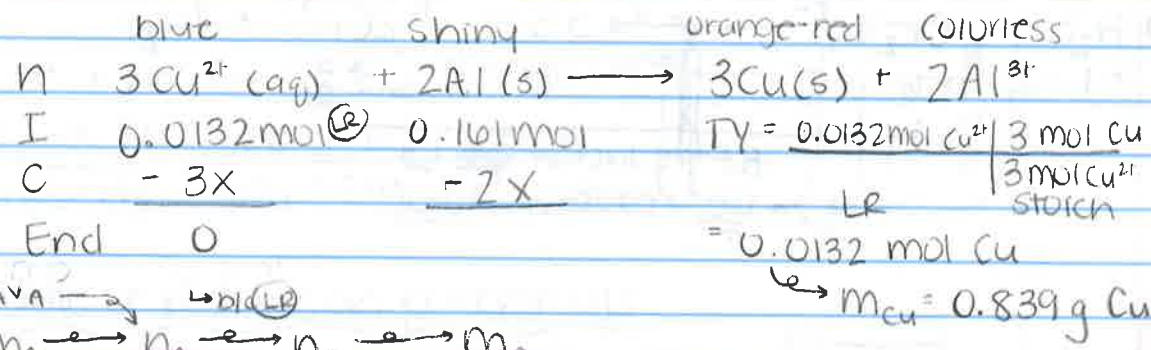 blue shiny orange-red colorless
n 3Cu²⁺ (aq) + 2Al (s) ⟶ 3Cu(s) + 2Al³⁺
I 0.0132 mol (LR) 0.161 mol TY = 0.0132 mol Cu²⁺ | 3 mol Cu
C - 3x - 2x | 3 mol Cu²⁺
LR stoich
End 0 = 0.0132 mol Cu
A → ↳ b/c (LR) → m_Cu = 0.839 g Cu